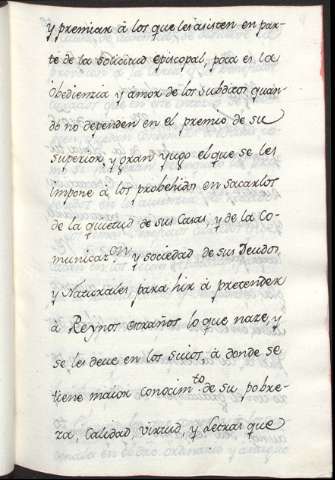 y premiar à los que les asisten en par-
te de la solicitud episcopal, poca es la
obedienzia y amor de los subditos quan-
do no dependen en el premio de su
superior, y gran yugo el que se les
impone à los probehidos en sacarlos
de la quietud de sus Casas, y de la Co-
municaz.on y sociedad de sus Deudos,
y Naturales, para hir à pretender
à Reynos estraños lo que naze, y
se les deve en los suios, à donde se
tiene maior conocim.to de su pobre-
za, Calidad, virtud, y Letras que